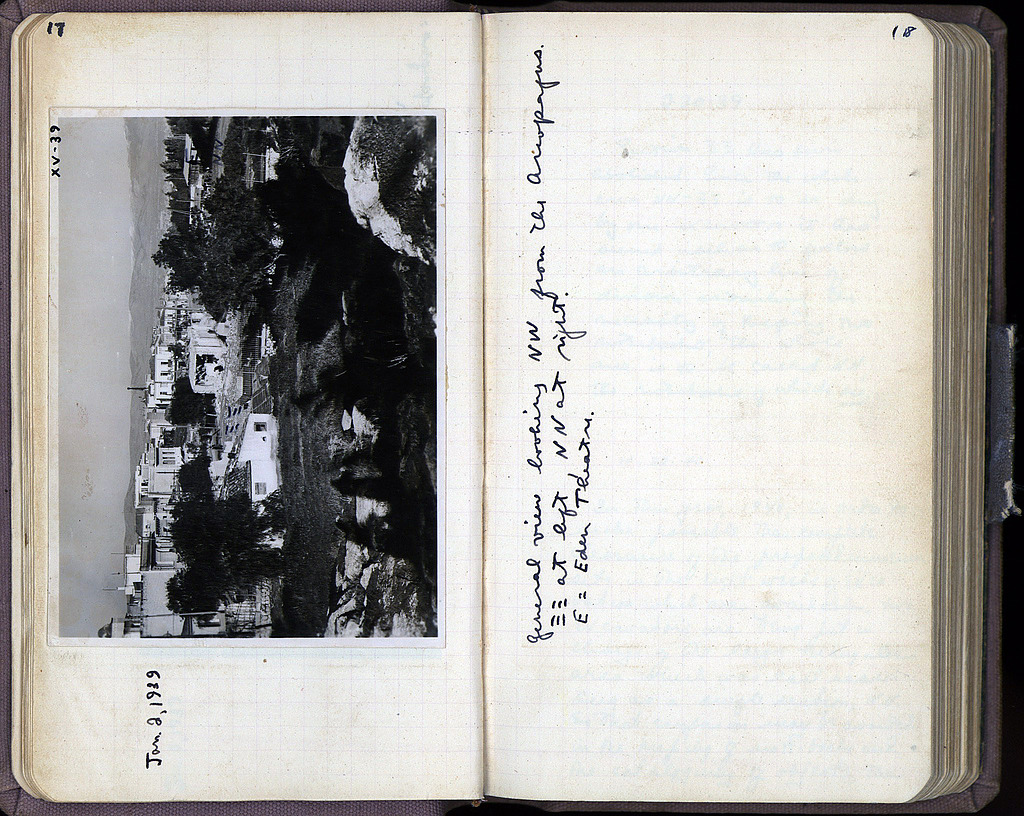 17
18
XV-39
Jan. 2, 1939
General view looking NW from the Areopagus.
ΞΞ at left NN at right.
E = Eden Theatre.